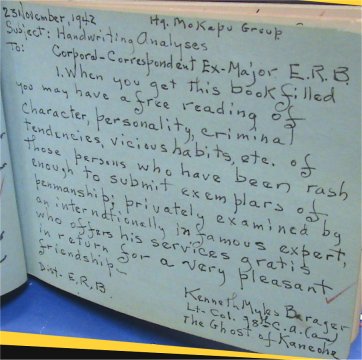 23 November, 1942 Hq. Mokapu Group
Subject: Handwriting Analyses
To: Corporal-Correspondent Ex-Major E.R.B.
1. When you get this book filled
you may have a free reading of
character, personality, criminal
tendencies, vicious habits, etc. of
those persons who have been rash
enough to submit exemplars of
penmanship; privately examined by
an internationally infamous expert,
who offers his services gratis
in return for a very pleasant
friendship—
Dist. E.R.B.
Kenneth
Lt. Col. C.A.
The Ghost of Kaneohe